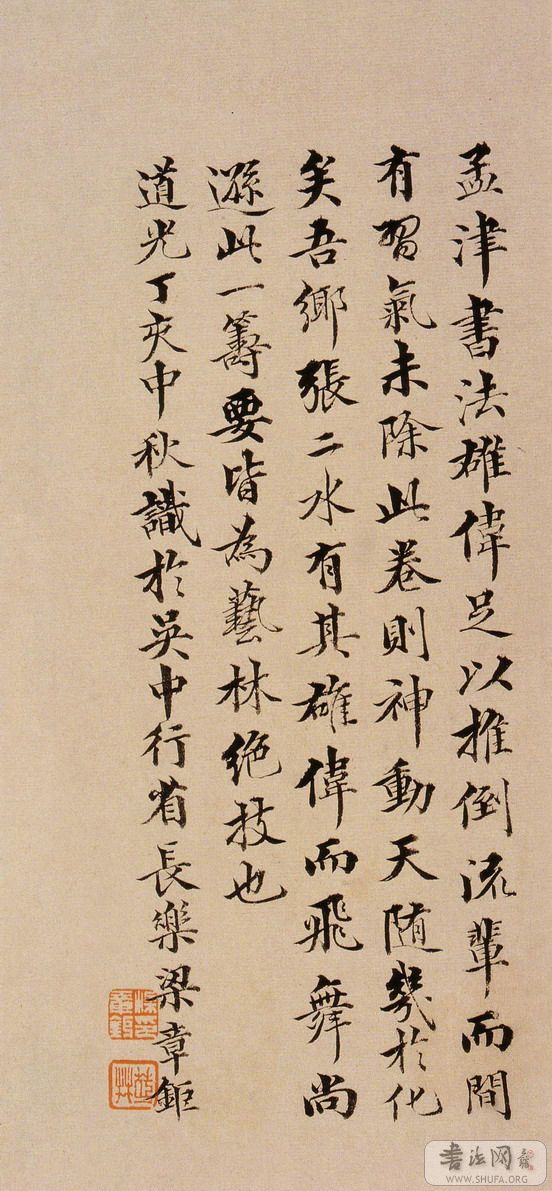 孟津書法雄偉足以推倒流輩而間
有習氣未除此卷則神動天随幾於化
矣吾鄉張二水有其雄偉而飛舞尚
遜此一籌要皆為藝林絕技也
道光丁亥中秋識於吳中行省長樂梁章鉅
梁章鉅
茝林
书法网
WWW.SHUFA.ORG